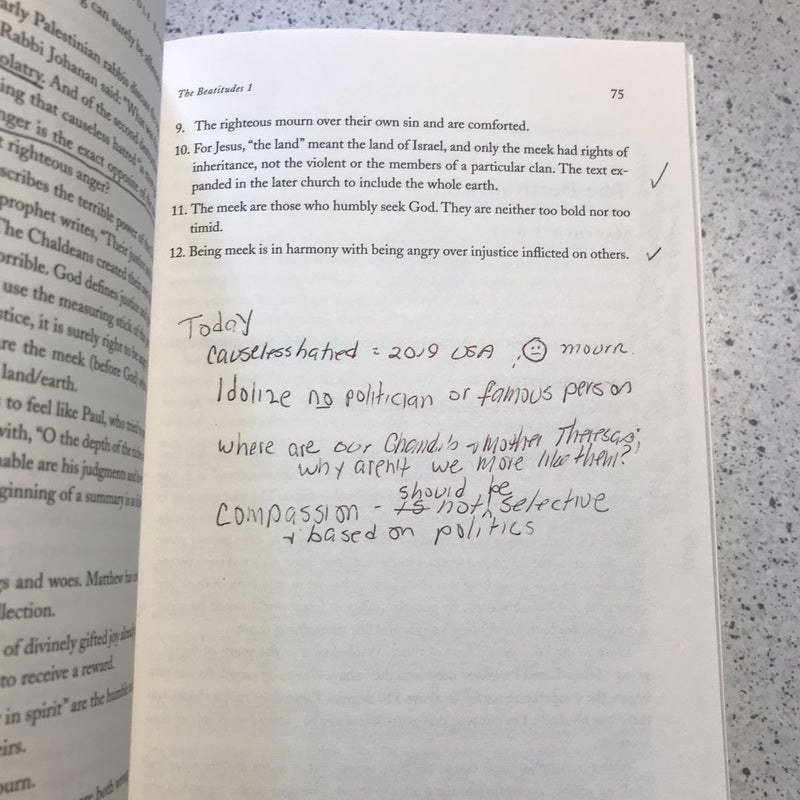 g can surely be
arly Palestinian rabbis discuss
Rabbi Johanan said: "What
olatry. And of the second
ing that causeless hatred"
nger is the exact opposite of the
t righteous anger?
scribes the terrible power of the
prophet writes, "Their justice
The Chaldeans created their own
orrible. God defines justice and
use the measuring stick of
stice, it is surely right to be
are the meek (before God) who
land/earth.
to feel like Paul, who tried to
with, "O the depth of the
nable are his judgments and
ginning of a summary is as
gs and woes. Matthew has
llection.
of divinely gifted joy already
to receive a reward.
in spirit" are the humble and
eirs.
ourn.
are both
The Beatitudes 1 75
9. The righteous mourn over their own sin and are comforted.
10. For Jesus, "the land" meant the land of Israel, and only the meek had rights of
inheritance, not the violent or the members of a particular clan. The text ex-
panded in the later church to include the whole earth.
11. The meek are those who humbly seek God. They are neither too bold nor too
timid.
12. Being meek is in harmony with being angry over injustice inflicted on others.
Today
Causeless hatred = 2019 USA, mourn.
Idolize no politician or famous person
where are our Ghandis + Mother Theresas;
why aren't we more like them?
should be
Compassion - is not selective
+ based on politics